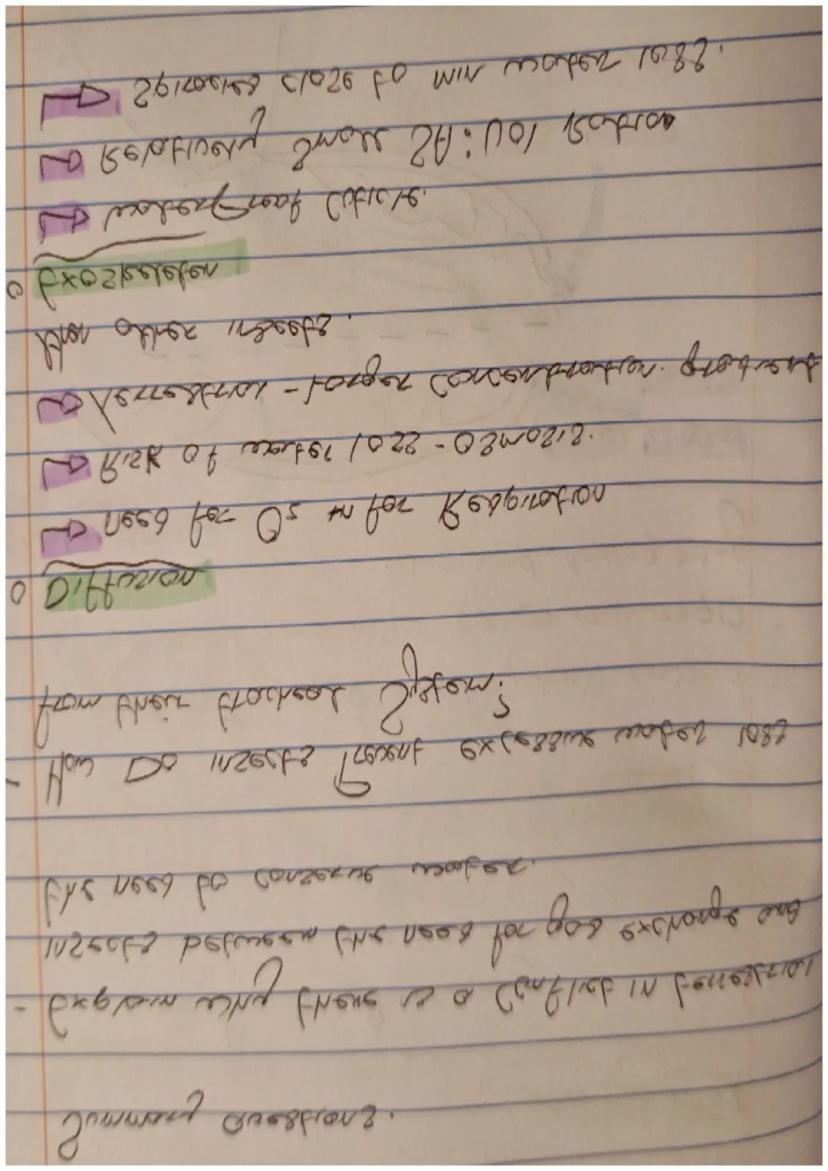 Summary questions.
- Explain why there is a Conflict in terrestrial
insects between the need for gas exchange and
the need to conserve water.
- How do insects prevent excessive water loss
from their tracheal system?
o Diffusion
→ need for O₂ for Respiration
→ Risk of water loss - Osmosis.
→ Terrestrial - larger concentration gradient
than other insects.
o Exoskeleton
→ waterproof cuticle.
→ Relatively small SA:Vol Ration
→ spiracles close to min water loss.